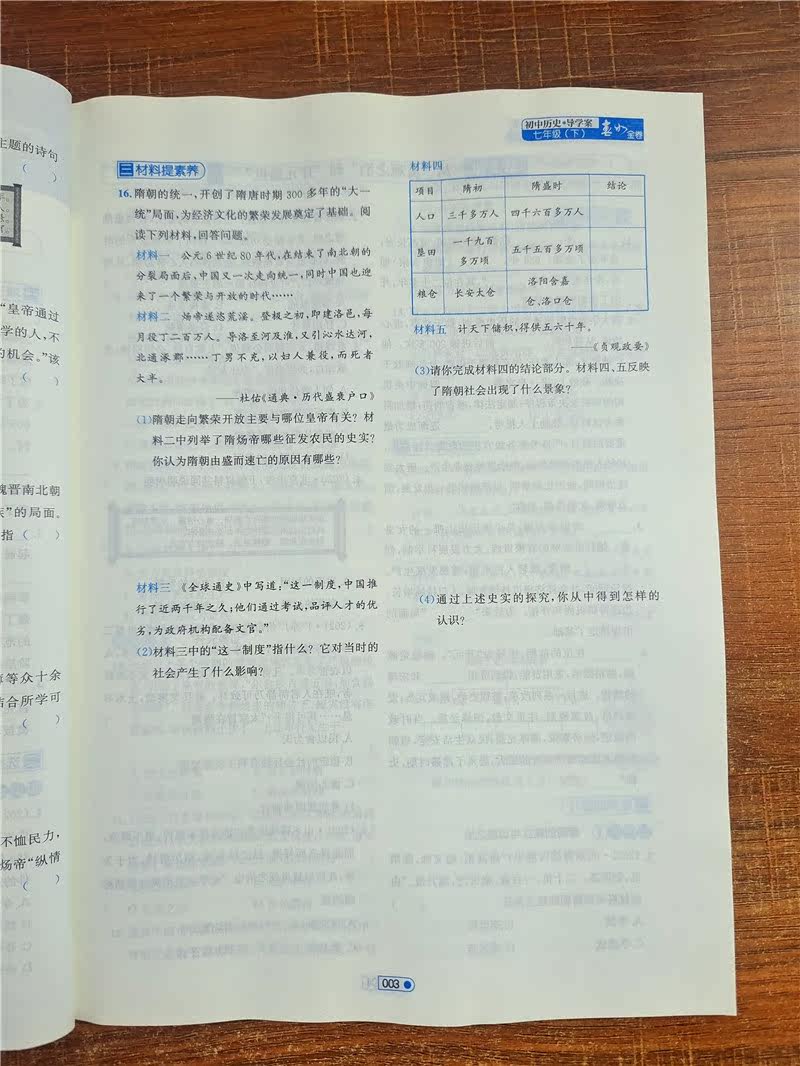 主题的诗句
(　　)
“皇帝通过
学的人,不
的机会。”该
(　　)
魏晋南北朝
族”的局面。
指(　　)
等众十余
结合所学可
(　　)
不恤民力,
炀帝“纵情
(　　)
初中历史·导学案
七年级(下)
全卷
三 材料提素养
16.隋朝的统一,开创了隋唐时期 300 多年的“大一
统”局面,为经济文化的繁荣发展奠定了基础。阅
读下列材料,回答问题。
材料一　公元 6 世纪 80 年代,在结束了南北朝的
分裂局面后,中国又一次走向统一,同时中国也迎
来了一个繁荣与开放的时代……
材料二　炀帝遂恣荒淫。登极之初,即建洛邑,每
月役丁二百万人。导洛至河及淮,又引沁水达河,
北通涿郡……丁男不充,以妇人兼役,而死者
大半。
——杜佑《通典·历代盛衰户口》
(1)隋朝走向繁荣开放主要与哪位皇帝有关?材
料二中列举了隋炀帝哪些征发农民的史实?
你认为隋朝由盛而速亡的原因有哪些?
材料三　《全球通史》中写道:“这一制度,中国推
行了近两千年之久;他们通过考试,品评人才的优
劣,为政府机构配备文官。”
(2)材料三中的“这一制度”指什么?它对当时的
社会产生了什么影响?
材料四
项目　隋初　隋盛时　结论
人口　三千多万人　四千六百多万人
垦田　一千九百多万顷　五千五百多万顷
粮仓　长安太仓　洛阳含嘉仓、洛口仓
材料五　计天下储积,得供五六十年。
——《贞观政要》
(3)请你完成材料四的结论部分。材料四、五反映
了隋朝社会出现了什么景象?
(4)通过上述史实的探究,你从中得到怎样的
认识?
003